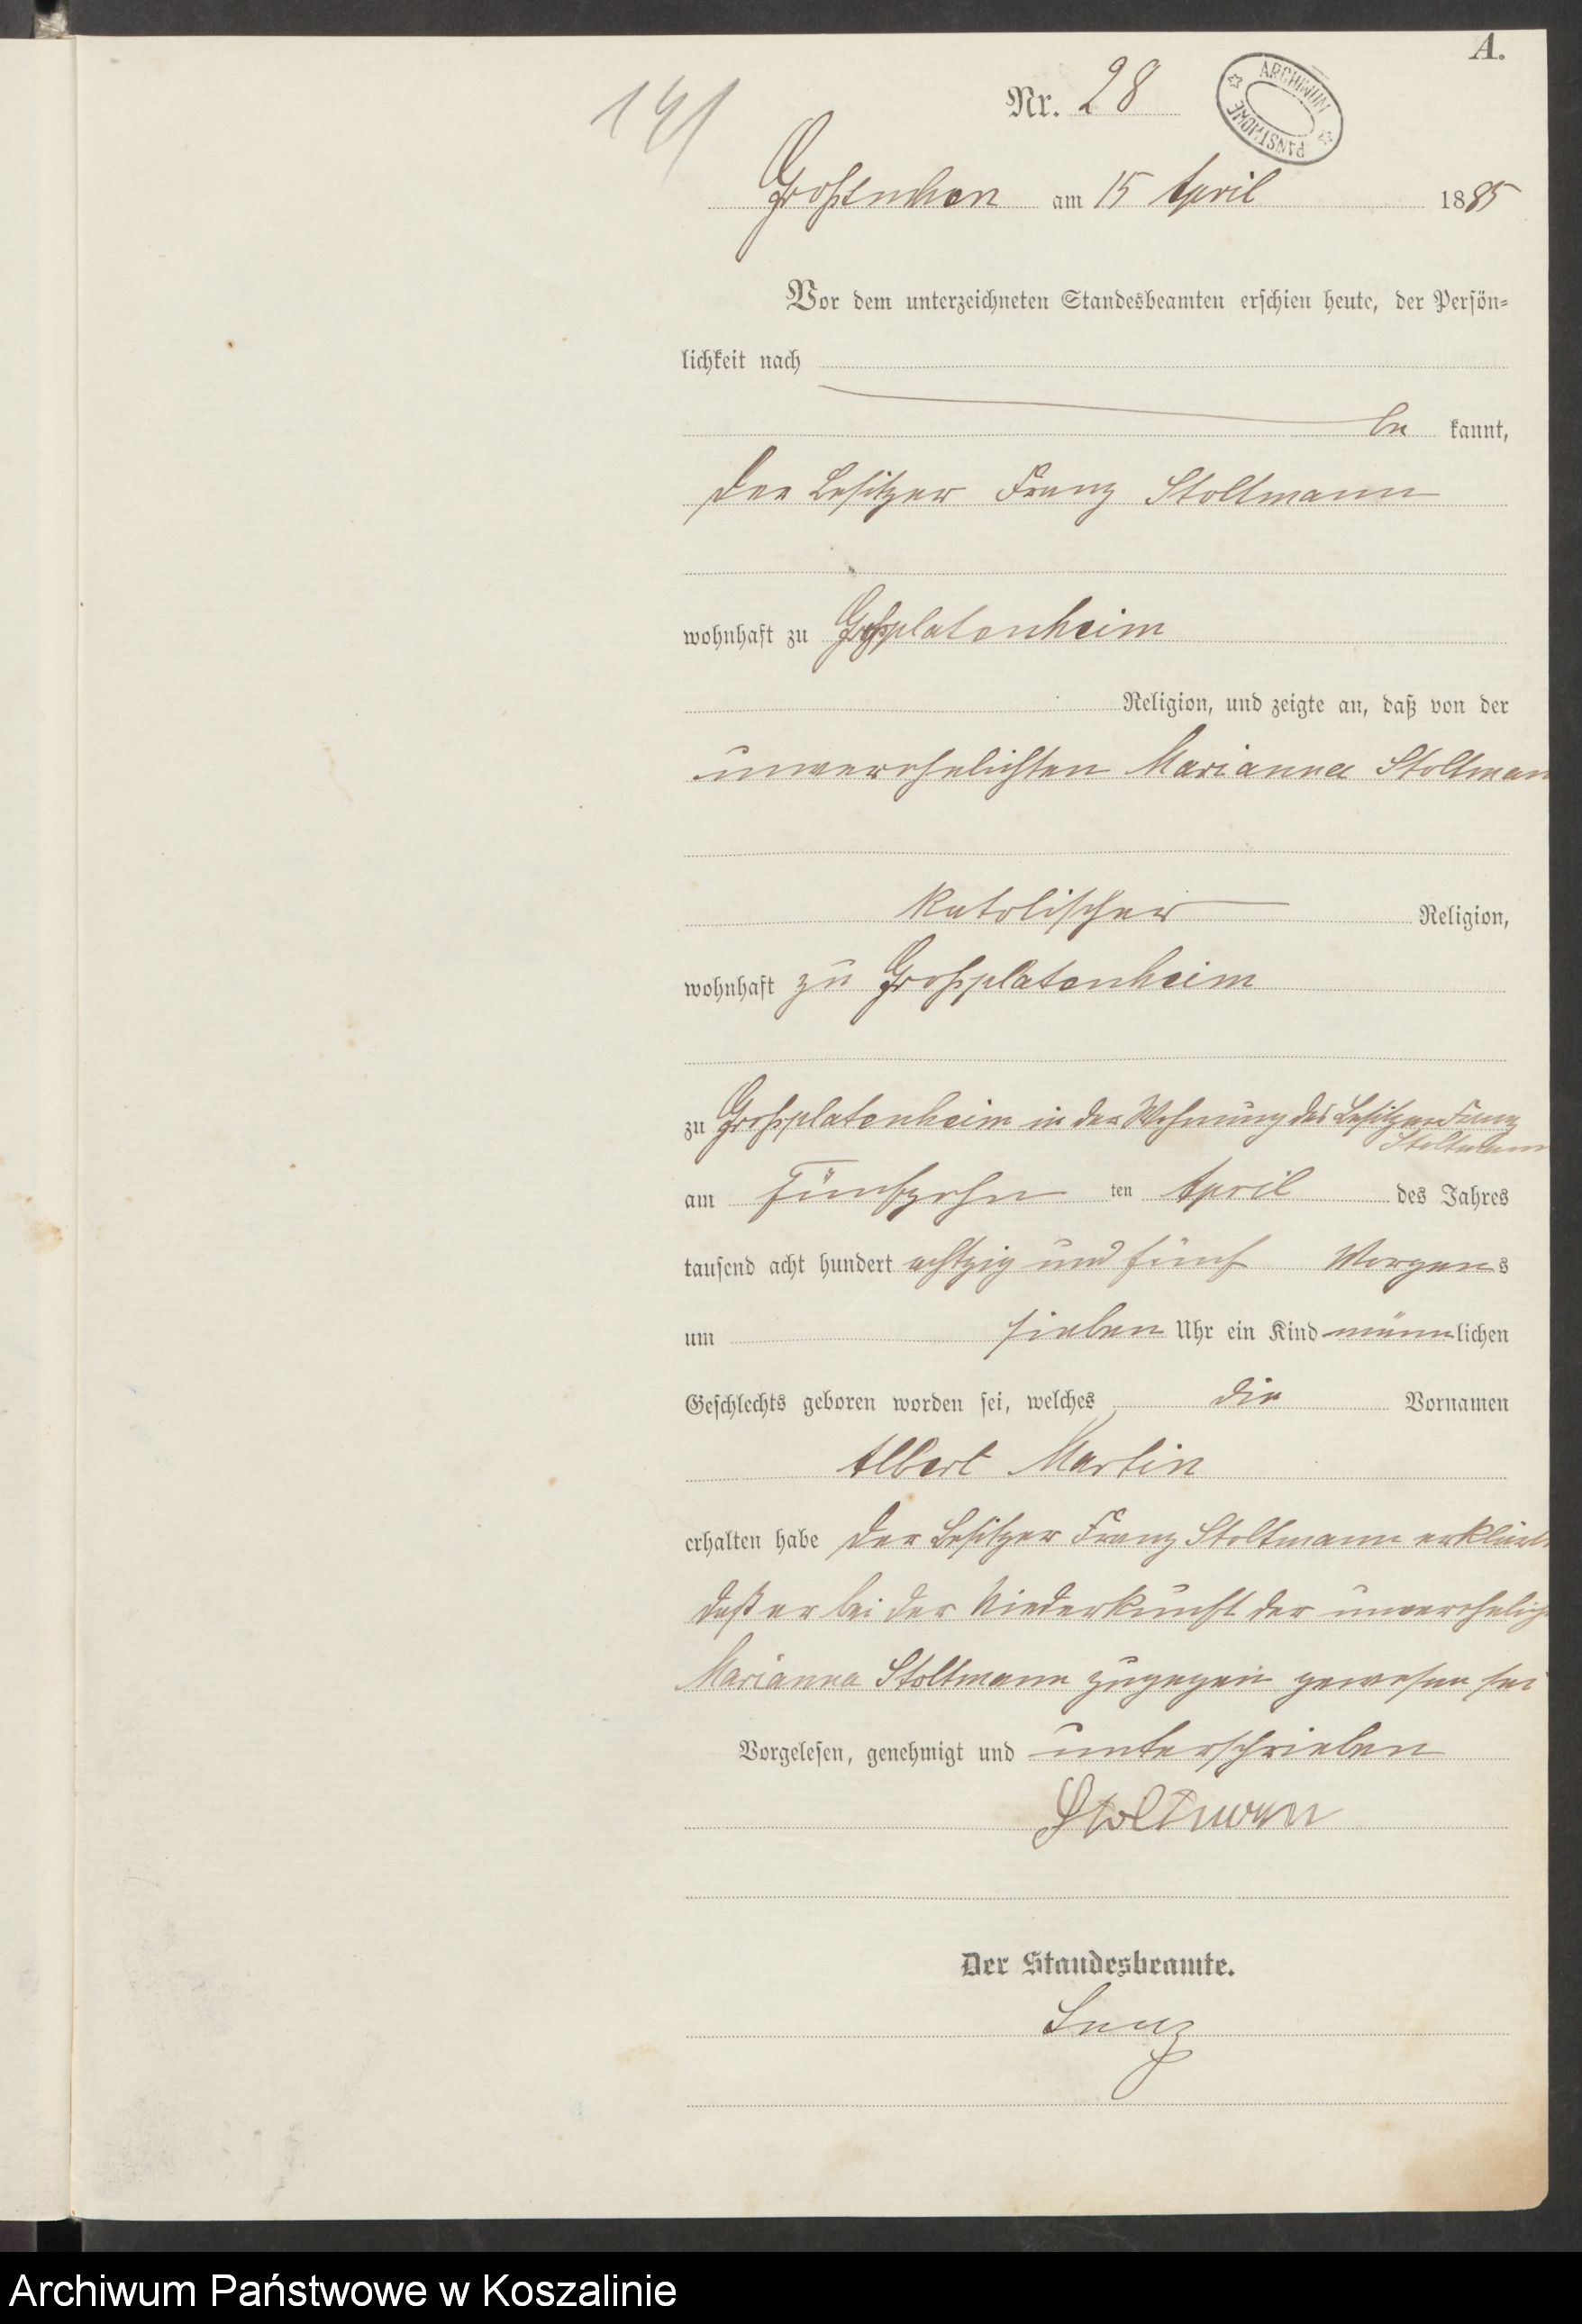 A.
141
Nr. 28
ARCHIWUM PAŃSTWOWE
Großtuchen am 15 April 1885
Vor dem unterzeichneten Standesbeamten erschien heute, der Persön-
lichkeit nach
be kannt,
der Besitzer Franz Stoltmann
wohnhaft zu Großplatenheim
Religion, und zeigte an, daß von der
unverehelichten Marianna Stoltman
katolischer Religion,
wohnhaft zu Großplatenheim
zu Großplatenheim in der Wohnung des Besitzers Franz
Stoltmann
am fünfzehn ten April des Jahres
tausend acht hundert achtzig und fünf Morgens
um sieben Uhr ein Kind männlichen
Geschlechts geboren worden sei, welches die Vornamen
Albert Martin
erhalten habe Der Besitzer Franz Stoltmann erklärt
daß er bei der Niederkunft der unverehelicht
Marianna Stoltmann zugegen gewesen sei
Vorgelesen, genehmigt und unterschrieben
Stoltman
Der Standesbeamte.
Archiwum Państwowe w Koszalinie